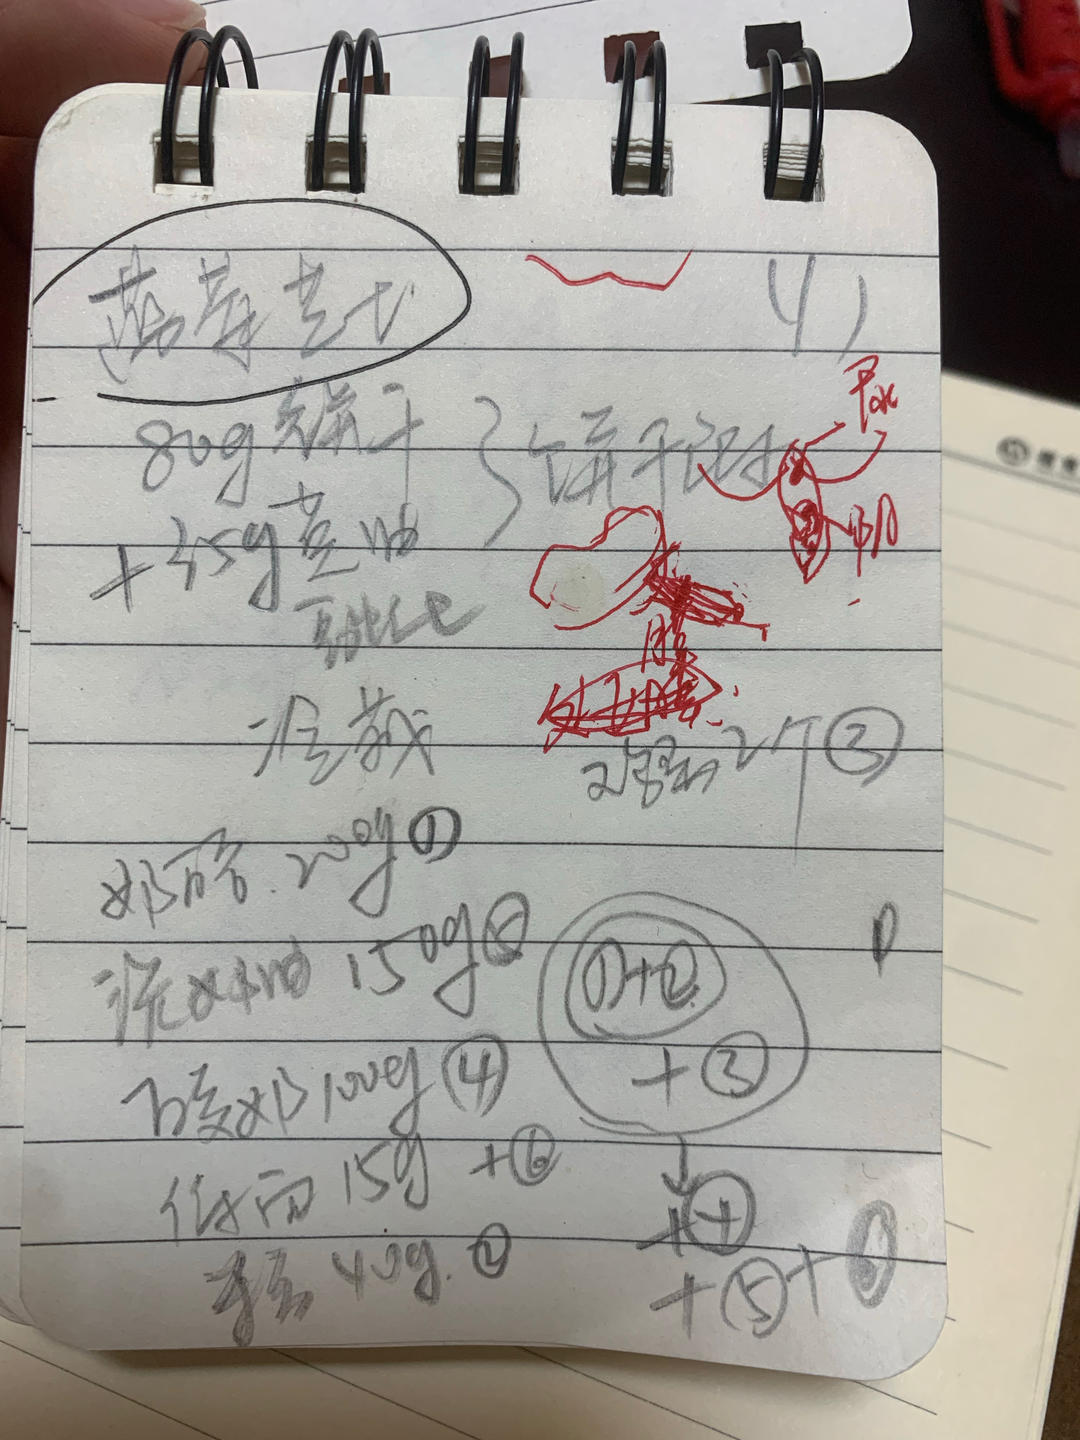 蓝莓芝士
4)
80g 饼干 } 饼干
+35g 黄油
融化
冷藏
鸡蛋 2个 ③
奶酪 200g ①
淡奶油 150g ⑤
①+②
+③
酸奶 100g ④
低面 15g +⑥
糖 40g. ②
↓
+④
+⑤+